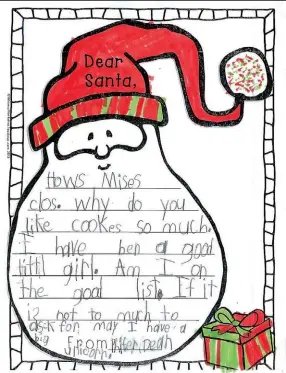 Dear
Santa,
Hows Mises
clos. why do you
like cookes so much.
I have ben a good
littil girl. Am I on
the good list. If it
is not to much to
ask for may I have a
big
Snicorn.
From